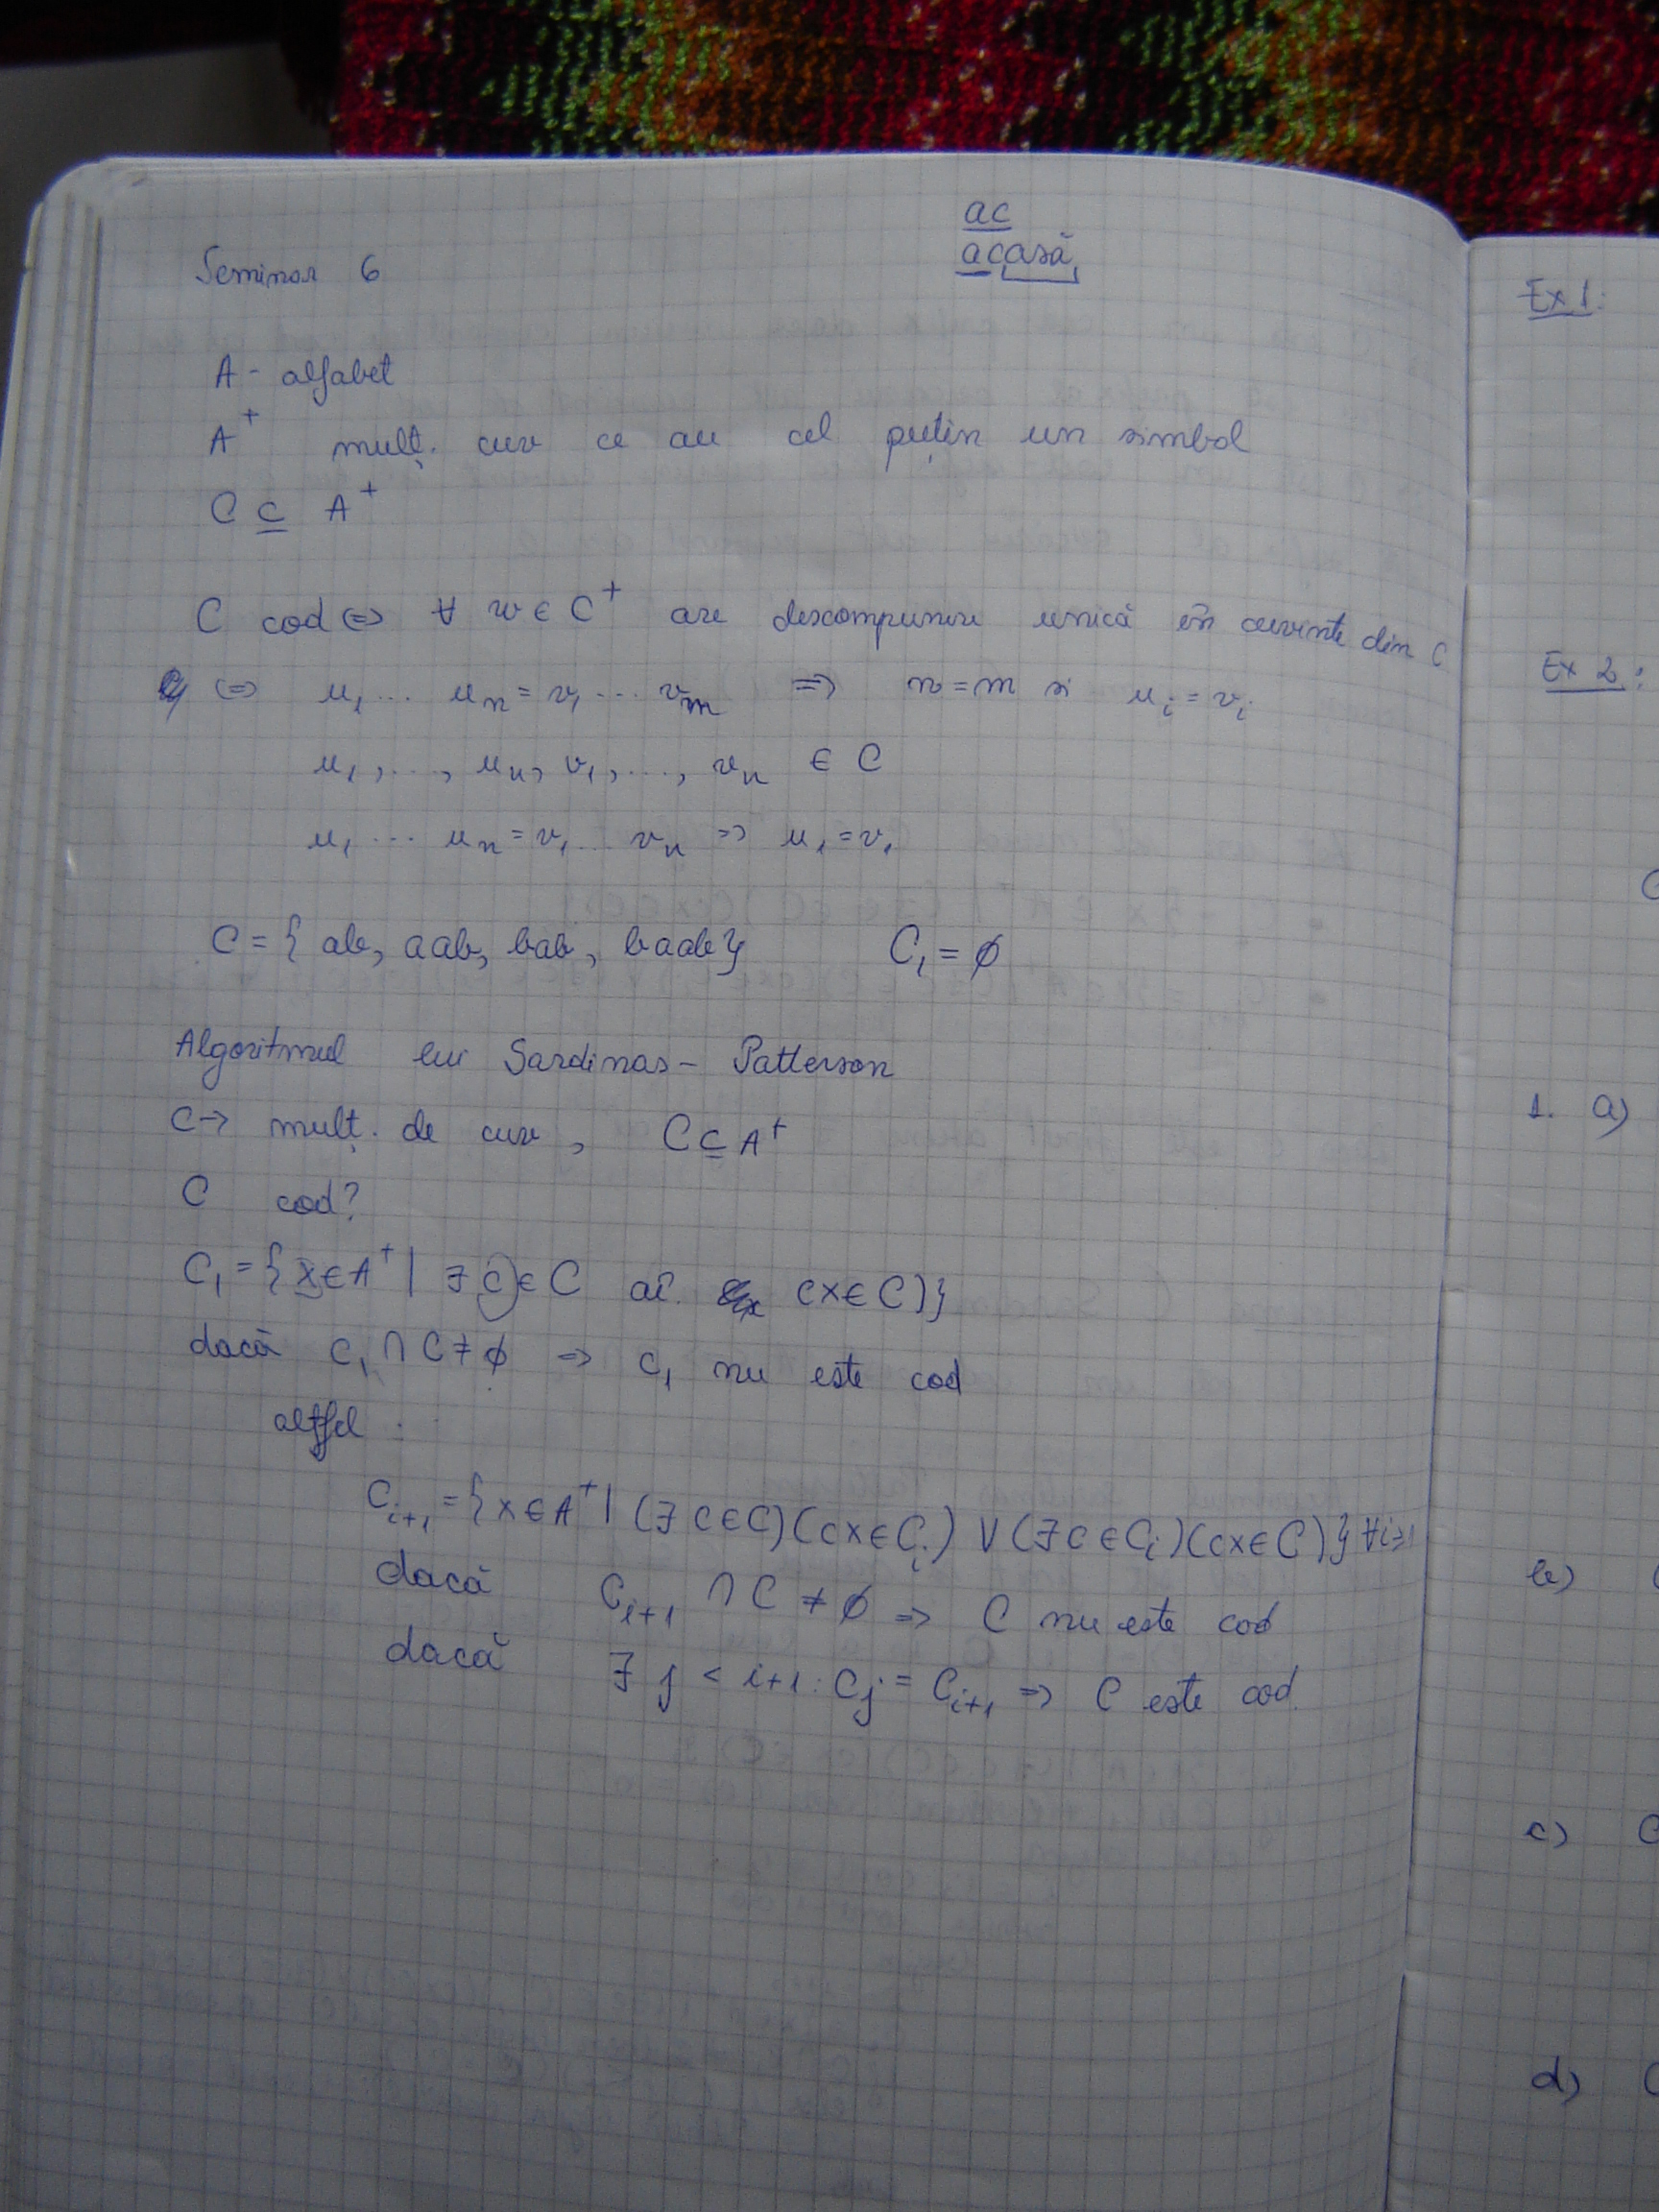 ac
acasă
Seminar 6
A - alfabet
A⁺ mulț. cuv ce au cel puțin un simbol
C ⊆ A⁺
C cod ⇔ ∀ w ∈ C⁺ are descompunere unică în cuvinte din C
⇔ u₁ ... uₙ = v₁ ... vₘ ⇒ n = m si uᵢ = vᵢ
u₁, ..., uₙ, v₁, ..., vₙ ∈ C
u₁ ... uₙ = v₁ ... vₙ ⇒ u₁ = v₁
C = { ab, aab, bab, baab} C₁ = ∅
Algoritmul lui Sardinas - Patterson
C → mulț. de cuv, C ⊆ A⁺
C cod?
C₁ = { x ∈ A⁺ | ∃ c ∈ C aî. cx ∈ C)}
dacă C₁ ∩ C ≠ ∅ ⇒ C₁ nu este cod
altfel :
Cᵢ₊₁ = { x ∈ A⁺ | (∃ c ∈ C)(cx ∈ Cᵢ) ∨ (∃ c ∈ Cᵢ)(cx ∈ C)} ∀ i ≥ 1
dacă Cᵢ₊₁ ∩ C ≠ ∅ ⇒ C nu este cod
dacă ∃ j < i+1 : Cⱼ = Cᵢ₊₁ ⇒ C este cod
Ex 1:
Ex 2:
C
1. a)
b) C
c) C
d) C